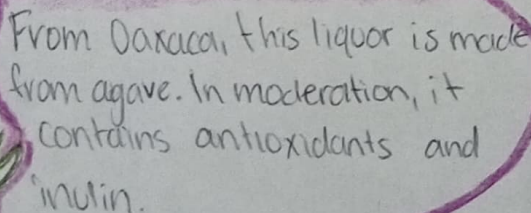 From Oaxaca, this liquor is made
from agave. In moderation, it
contains antioxidants and
inulin.